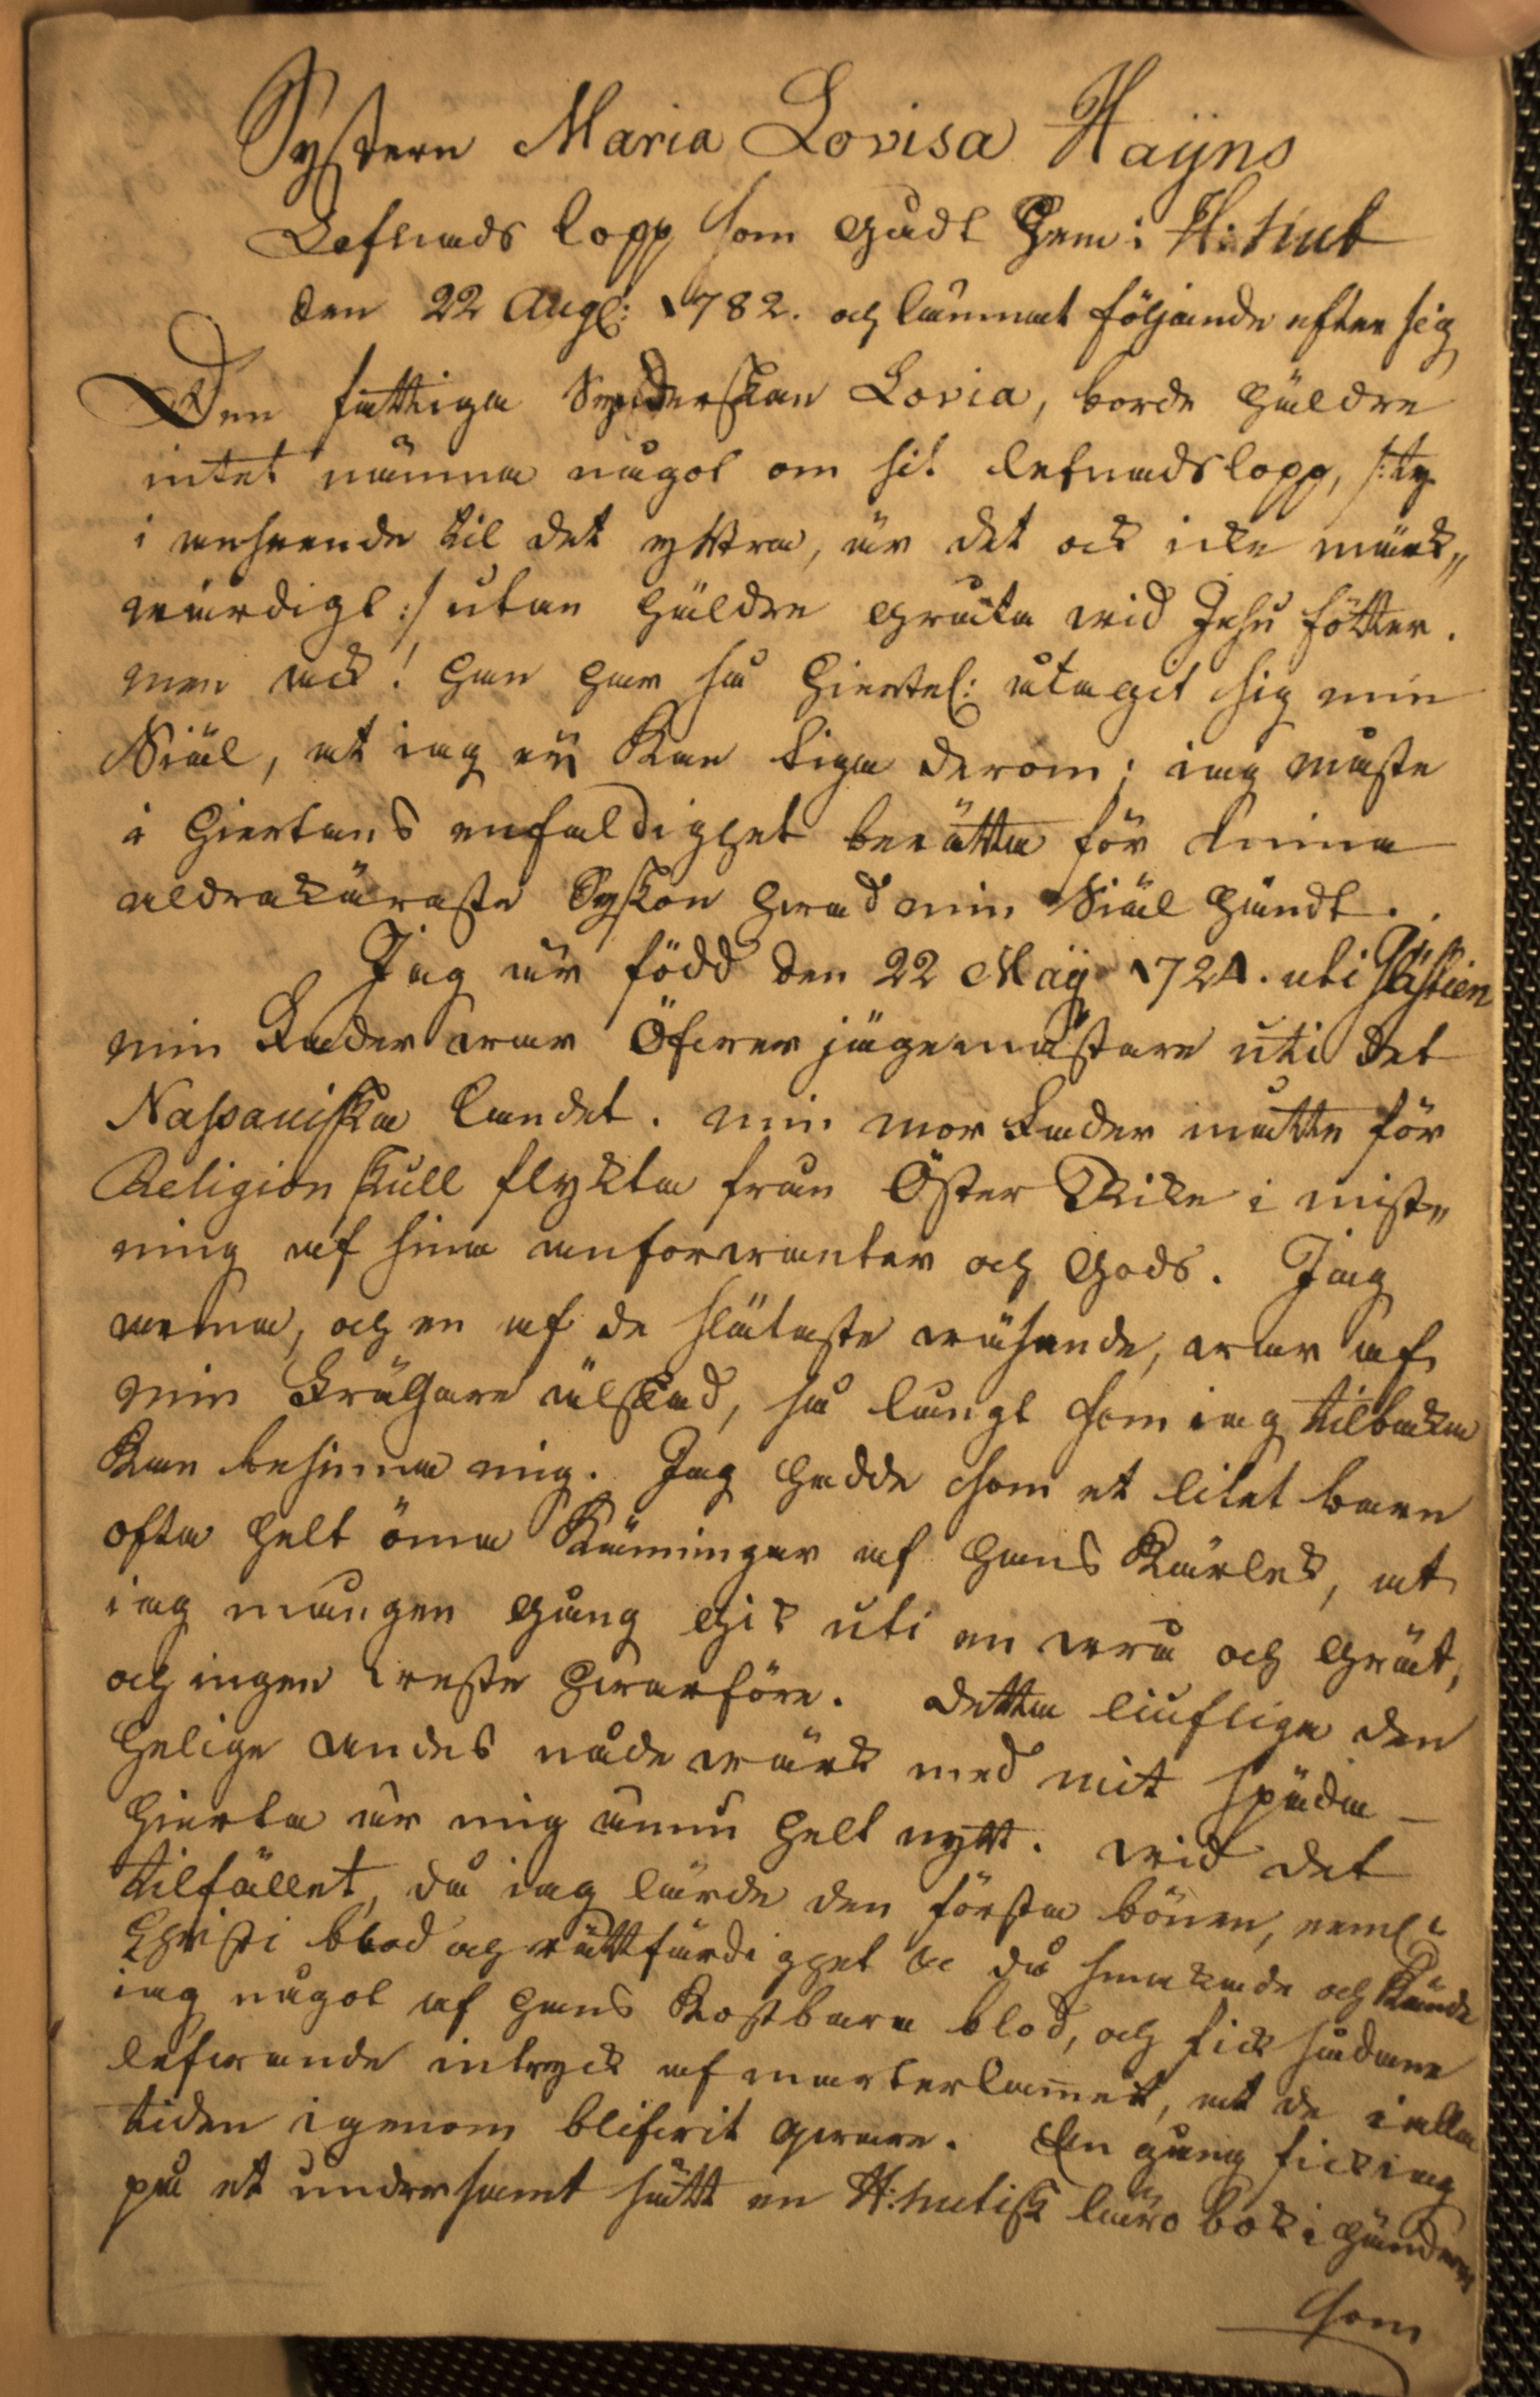 Systern Maria Lovisa Haijns
Lefnads lopp som gådt hem i H:hut
den 22 Aug: 1782. och lämnat följande efter sig
Den fattiga Synderskan Lovia, borde häldre
intet nämna något om sit lefnadslopp, /: ty
i anseende til det yttra, är det ock icke märk„
värdigt :/ utan häldre gråta wid Jesu fötter.
men ack! han har så hiertel: utagit sig min
Siäl, at iag eij kan tiga derom; iag måste
i hiertans enfaldighet berätta för mina
aldrakäraste Syskon hwad min Siäl händt.
Jag är född den 22 Maij 1724. uti
min Fader war Öfwer jägemästare uti det
Nassauiska landet. min mor Fader måtte för
Religion skull flykta från Öster Rike i mist„
ning af sina anforwanter och gods. Jag
arma, och en af de slätaste wäsende, war af
min Frälsare älskad, så långt som iag tilbaka
kan besinna mig. Jag hadde som et litet barn
ofta helt öma känningar af hans kärlek, at
iag mången gång gik uti en wrå och grät,
och ingen wiste hwarföre. detta liufliga den
helige andes nåde wärk med mit späda
hierta är mig ännu helt nytt. wid det
tilfället, då iag lärde den första bönen, neml:
Christi blod och rättfärdighet &c då smakade och kände
iag något af hans kostbara blod, och fick sådane
lefwande intryck af marterlamet, at de i alla
tiden igenom blifwit qwarr. En gång fick iag
på et undersamt sätt en H:hutisk läro bok i händren
som